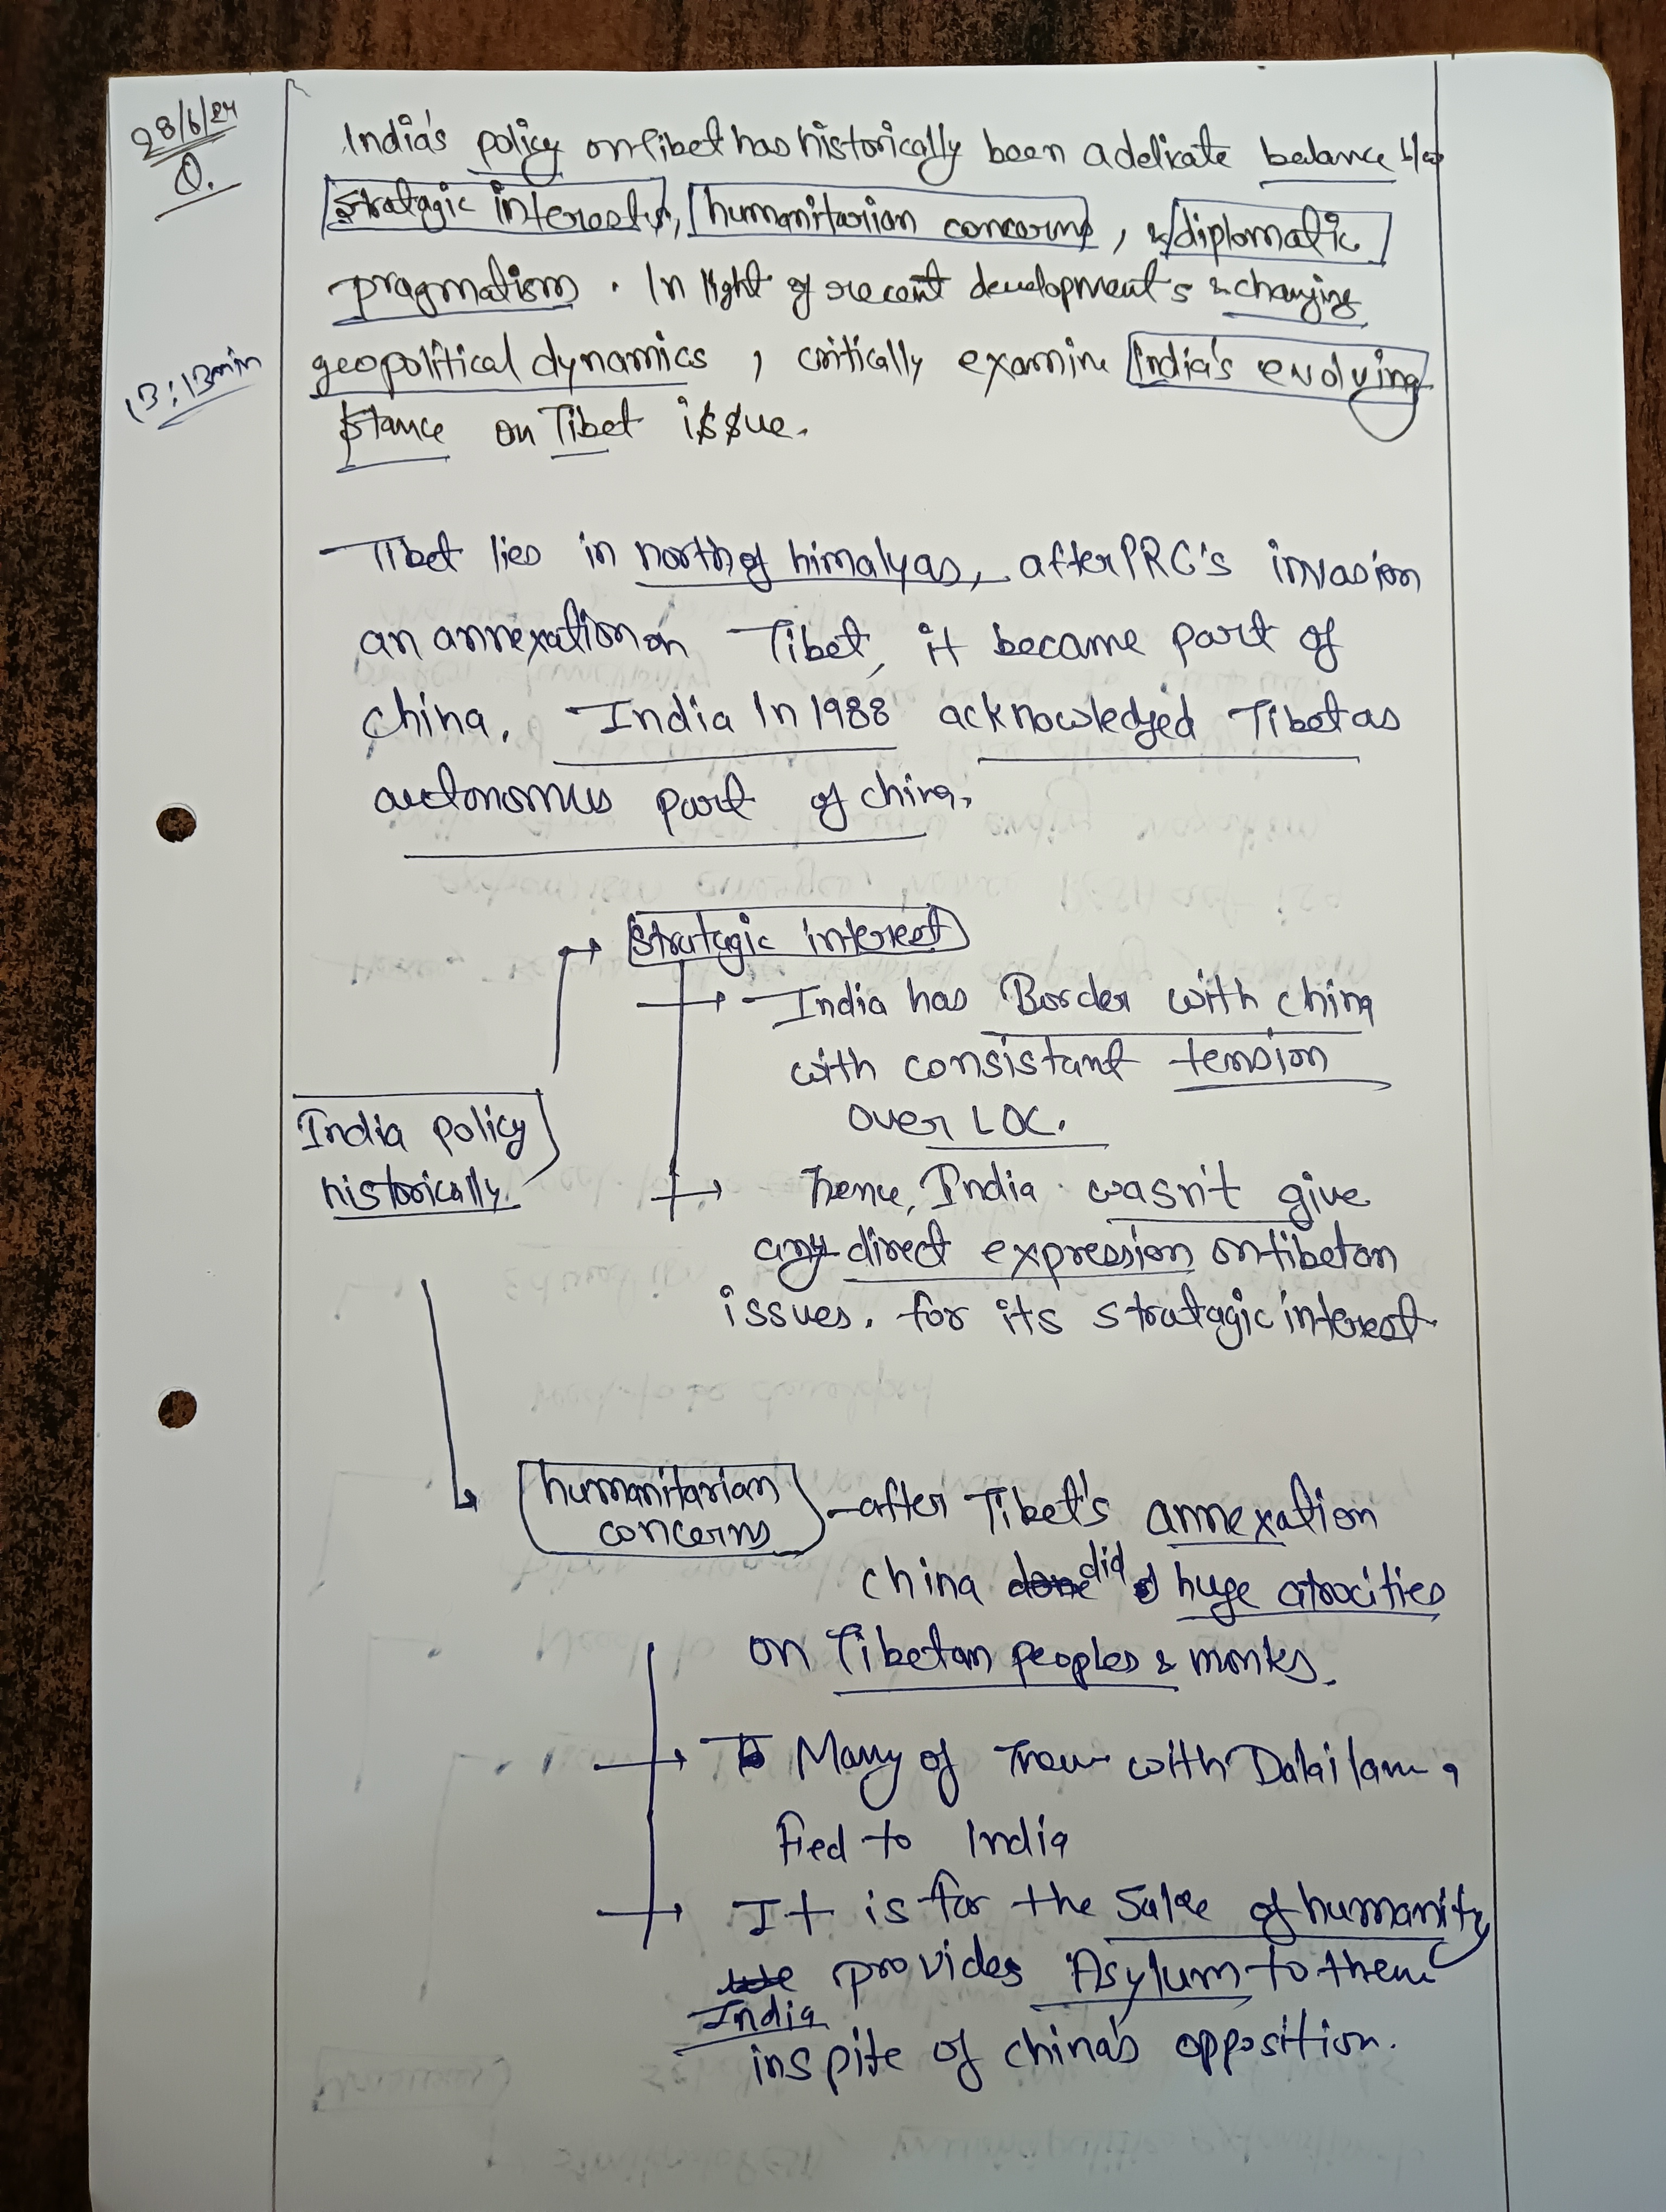 28/6/24
Q.
India's policy on Tibet has historically been a delicate balance b/w
stratagic interests, humanitarian concerns, & diplomatic
pragmatism. In light of recent developments & changing
geopolitical dynamics, critically examine India's evolving
stance on Tibet issue.
13:13min
Tibet lies in north of himalyas, after PRC's invasion
an annexation on Tibet, it became part of
china. India In 1988 acknowledged Tibet as
autonomus part of china.
stratagic interest
India has Border with china
with consistant tension
over LOC.
India policy
historically
hence, India wasn't give
any direct expression on tibetan
issues. for its stratagic interest
humanitarian
concerns
after Tibet's annexation
china did huge atrocities
on Tibetan peoples & monks.
Many of them with Dalai lama
fled to India
It is for the sake of humanity
India provides Asylum to them
inspite of china's opposition.